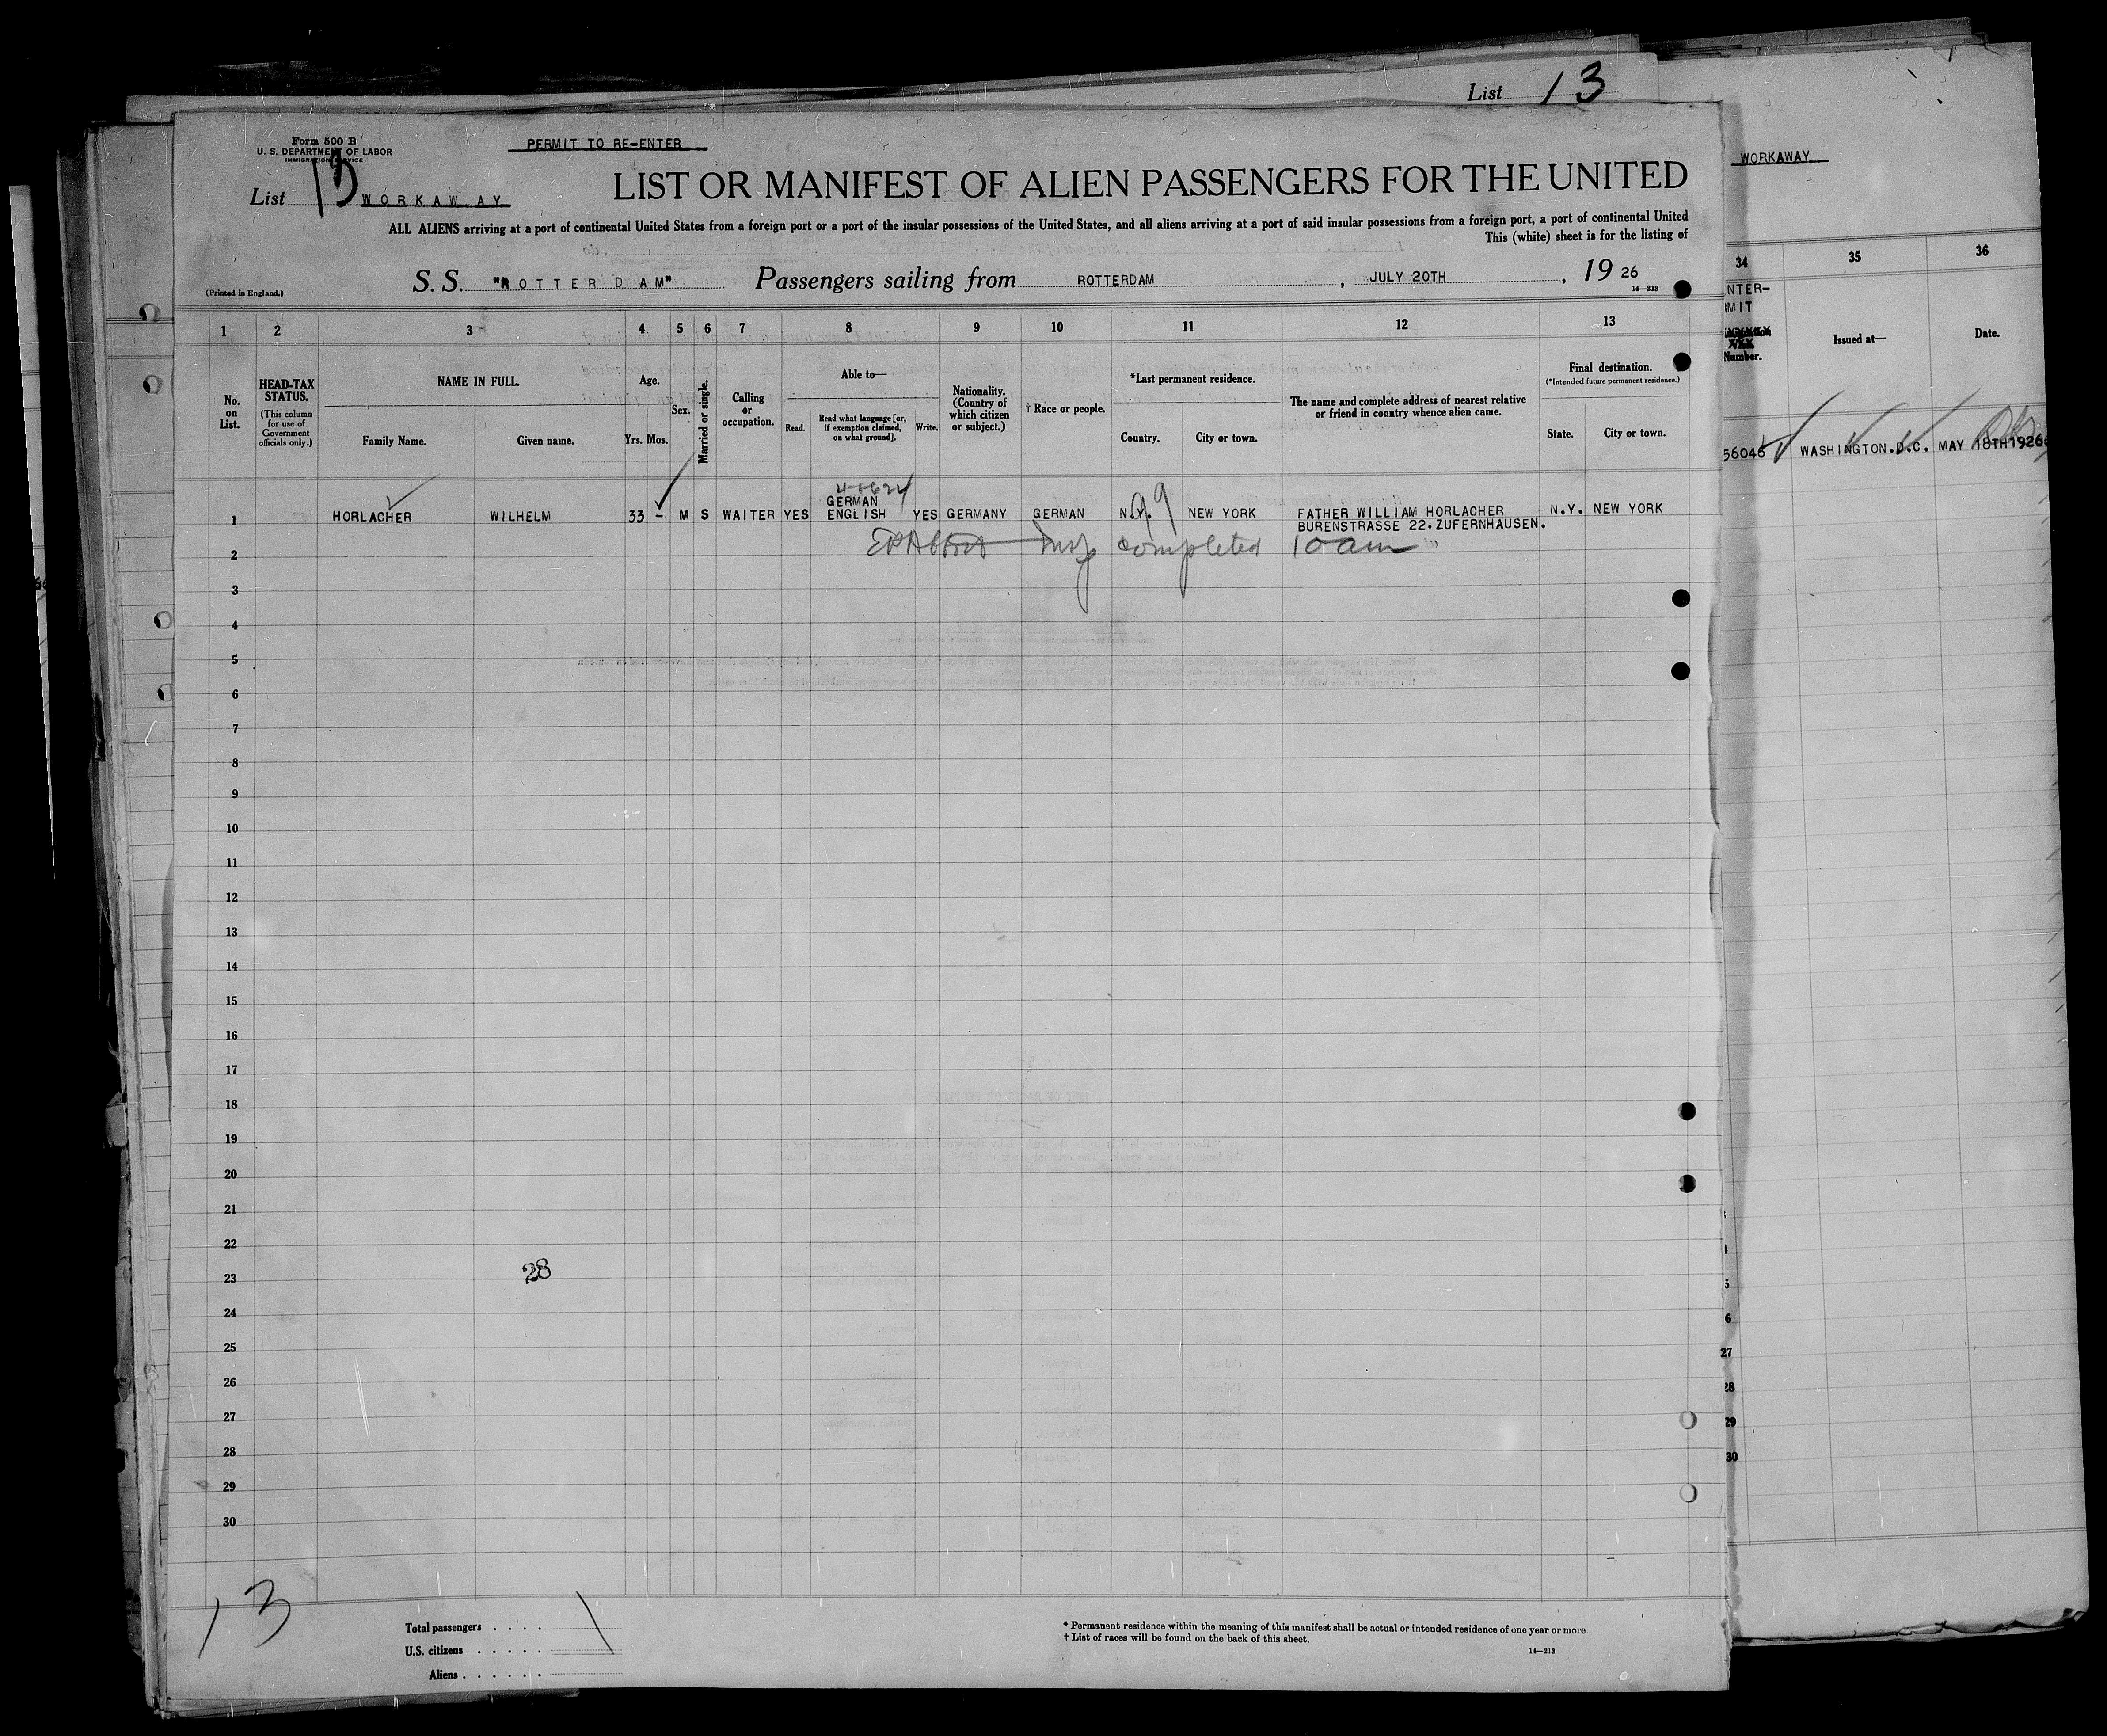 List 13
Form 500 B
U. S. DEPARTMENT OF LABOR
IMMIGRATION SERVICE
PERMIT TO RE-ENTER
WORKAWAY
List 13 WORKAWAY
LIST OR MANIFEST OF ALIEN PASSENGERS FOR THE UNITED
ALL ALIENS arriving at a port of continental United States from a foreign port or a port of the insular possessions of the United States, and all aliens arriving at a port of said insular possessions from a foreign port, a port of continental United
This (white) sheet is for the listing of
(Printed in England.)
S. S. "ROTTERDAM" Passengers sailing from ROTTERDAM , JULY 20TH , 19 26
14—213
1 2 3 4 5 6 7 8 9 10 11 12 13
34 35 36
No. on List.
HEAD-TAX STATUS.
(This column for use of Government officials only.)
NAME IN FULL.
Family Name. Given name.
Age.
Yrs. Mos.
Sex.
Married or single.
Calling or occupation.
Able to—
Read. Read what language [or, if exemption claimed, on what ground]. Write.
Nationality. (Country of which citizen or subject.)
† Race or people.
*Last permanent residence.
Country. City or town.
The name and complete address of nearest relative or friend in country whence alien came.
Final destination.
(*Intended future permanent residence.)
State. City or town.
NTER-
MIT
Number.
Issued at—
Date.
56046 WASHINGTON.D.C. MAY 18TH 1926
GERMAN
1 HORLACHER WILHELM 33 - M S WAITER YES ENGLISH YES GERMANY GERMAN N.Y. NEW YORK FATHER WILLIAM HORLACHER N.Y. NEW YORK
BURENSTRASSE 22.ZUFERNHAUSEN.
2 completed 10 am
3
4
5
6
7
8
9
10
11
12
13
14
15
16
17
18
19
20
21
22
23 28
24
25
26
27
28
29
30
6
27
28
29
30
13
Total passengers . . . . 1
U.S. citizens . . . . .
Aliens . . . . . .
* Permanent residence within the meaning of this manifest shall be actual or intended residence of one year or more
† List of races will be found on the back of this sheet.
14—213